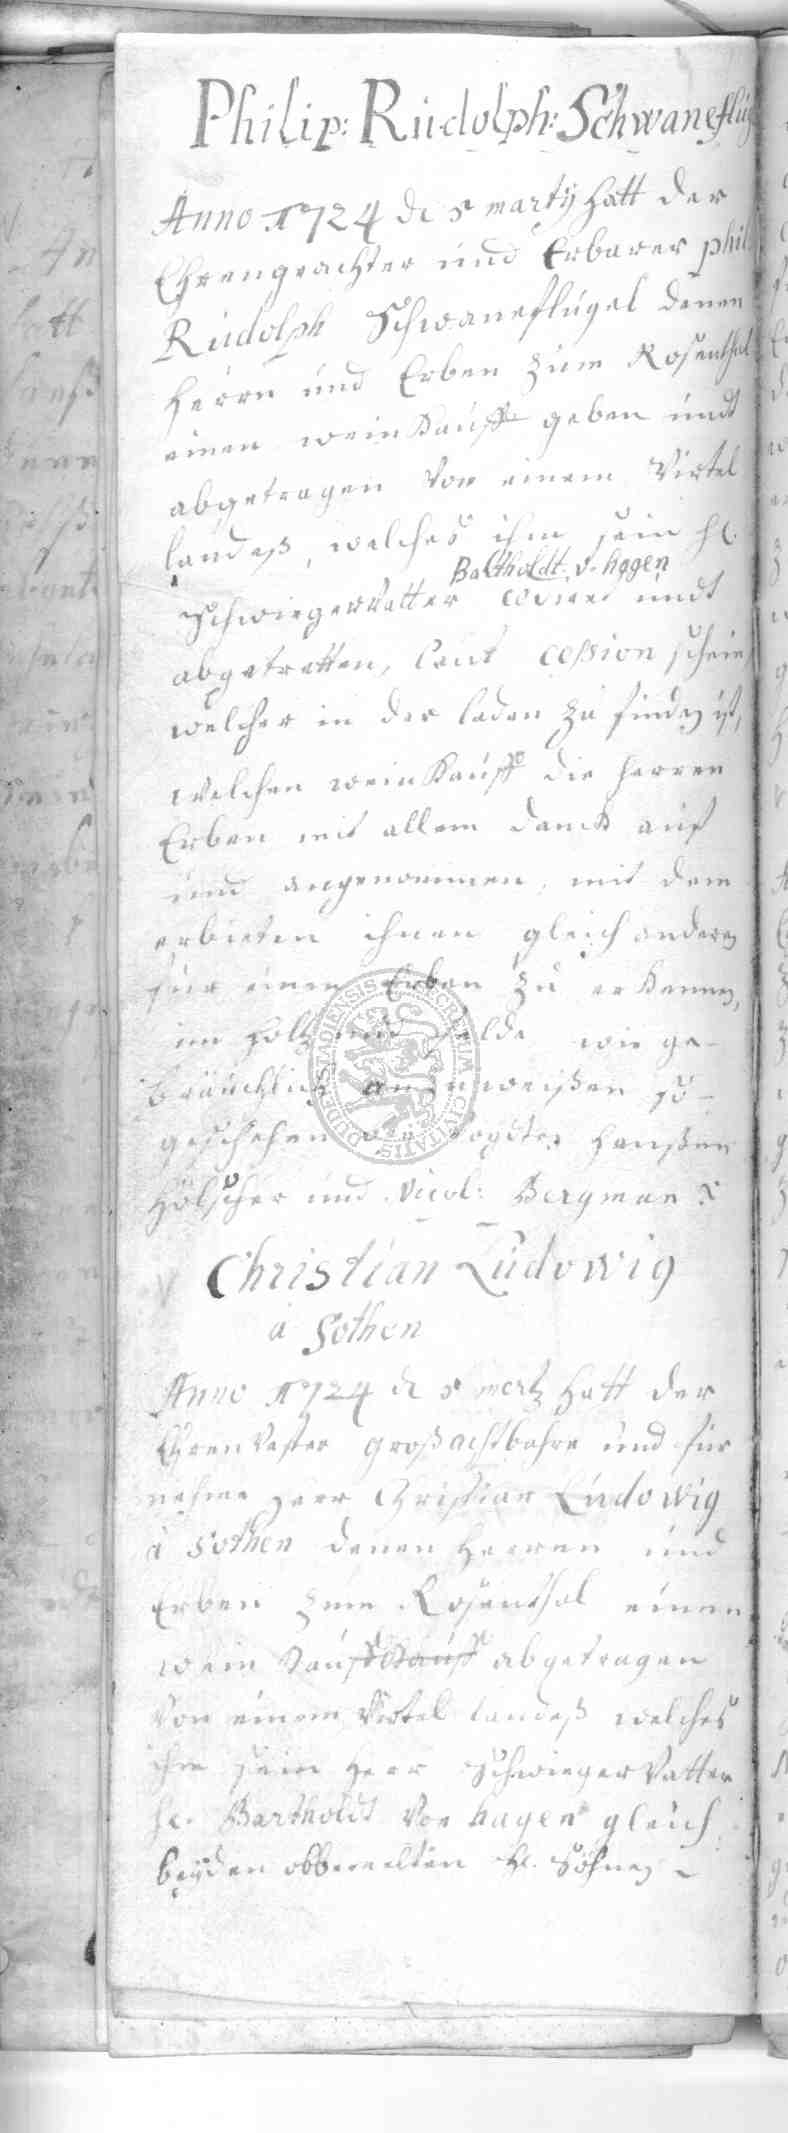 Philip: Rudolph: Schwaneflüg
Anno 1724 de 5 martÿ hatt der
Ehrengeachter und Erbarer phil.
Rudolph Schwaneflügel denen
Herrn und Erben zum Rosenthal
einen weinkauff geben undt
abgetragen von einem Virtel
landeß, welches ihm sein H.
Bartholdt. v. hagen
Schwiegervatter cediret undt
abgetretten, laut cession schein
welcher in der laden zu finden ist,
welchen weinkauff die herren
Erben mit allem danck auf
und angenommen, mit dem
erbieten ihnen gleich anderen
für einen Erben zu erkennen,
im holtz und felde wie ge-
bräuchlich anzuweißen so
geschehen von Vogdten Hanßen
Hölscher und Nicol: Bergman
Christian Ludowig
à Sothen
Anno 1724 de 5 mertz hatt der
Ehrenvester großachtbahre und für
nehme Herr Christian Ludowig
à Sothen denen Herren und
Erben zum Rosenthal einen
weinkauff kauff abgetragen
Von einem Virtel landeß welches
ihm sein Herr Schwiegervatter
H. Bartholdt Von hagen gleich
beÿden obbemelten H. Söhnen
SECRETUM CIVITATIS DUDERSTADIENSIS